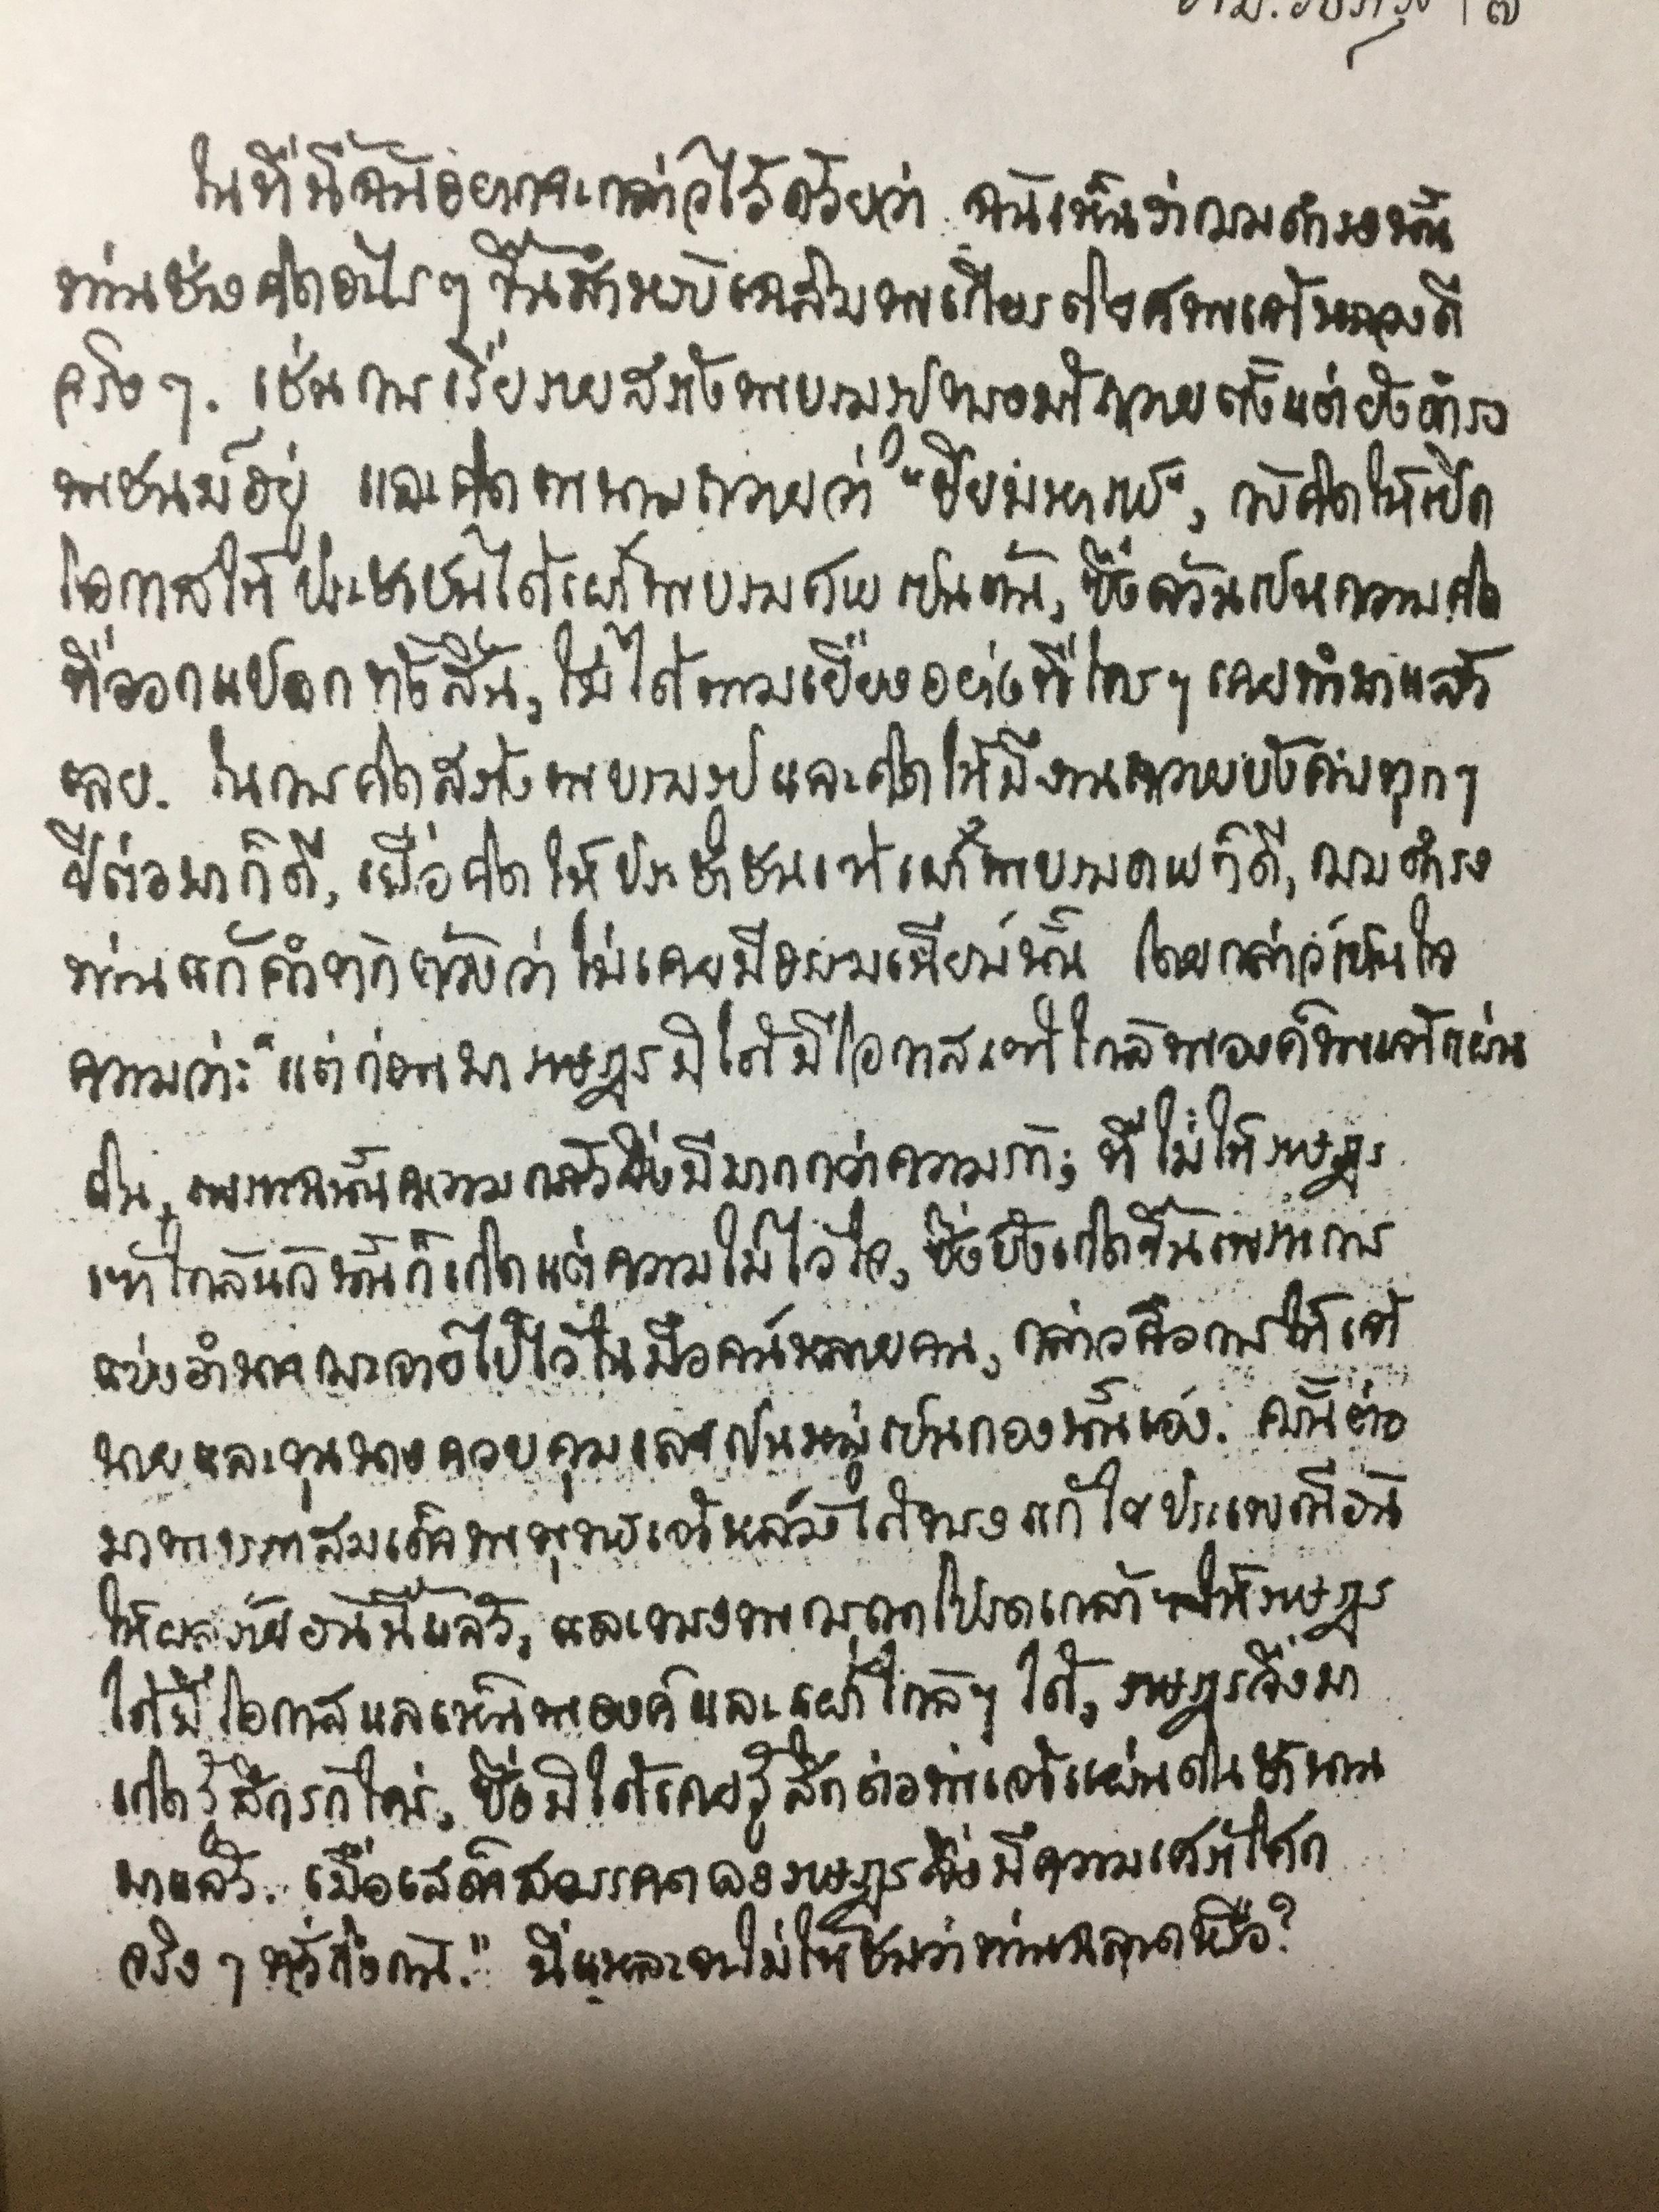 ในที่นี้ฉันอยากจะกล่าวไว้ด้วยว่า ฉันเห็นว่ากรมดำรงนั้น
ท่านช่างคิดอะไรๆ ขึ้นสำหรับเฉลิมพระเกียรติยศพระเจ้าหลวงดี
จริงๆ. เช่นการเรี่ยรายสร้างพระบรมรูปทรงม้าถวายตั้งแต่ยังดำรง
พระชนม์อยู่ และคิดพระนามถวายว่า "ปิยมหาราช", กับคิดให้เปิด
โอกาสให้ประชาชนได้เฝ้าพระบรมศพ เป็นต้น, ซึ่งล้วนเป็นความคิด
ที่ออกแปลกทั้งสิ้น, ไม่ได้ตามเยี่ยงอย่างที่ใครๆ เคยทำมาแล้ว
เลย. ในการคิดสร้างพระบรมรูปและคิดให้มีงานถวายบังคมทุกๆ
ปีต่อมาก็ดี, เมื่อคิดให้ประชาชนเข้าเฝ้าพระบรมศพก็ดี, กรมดำรง
ท่านแก้คำทักท้วงว่าไม่เคยมีธรรมเนียมนั้น โดยกล่าวเป็นใจ
ความว่า: "แต่ก่อนมาราษฎรมิได้มีโอกาสเข้าใกล้พระองค์พระเจ้าแผ่น
ดิน, เพราะฉะนั้นความกลัวจึ่งมีมากกว่าความรัก; ที่ไม่ให้ราษฎร
เข้าใกล้นั้นก็เกิดแต่ความไม่ไว้ใจ, ซึ่งยังเกิดขึ้นเพราะการ
แบ่งอำนาจกระจายไปไว้ในมือคนหลายคน, กล่าวคือการให้เจ้า
นายและขุนนางควบคุมเลขเป็นหมู่เป็นกองนั้นเอง. ครั้นต่อ
มาพระบาทสมเด็จพระพุทธเจ้าหลวงได้ทรงแก้ไขประเพณีอัน
ให้ผลร้ายอันนี้แล้ว, และทรงพระกรุณาโปรดเกล้าฯ ให้ราษฎร
ได้มีโอกาสแลเห็นพระองค์และเฝ้าใกล้ๆ ได้, ราษฎรจึ่งมา
เกิดรู้สึกรักใคร่, ซึ่งมิได้เคยรู้สึกต่อพระเจ้าแผ่นดินช้านาน
มาแล้ว. เมื่อเสด็จสวรรคตลงราษฎรจึ่งมีความเศร้าโศก
จริงๆ ทั่วถึงกัน." นี่แหละจะไม่ให้ชมว่าท่านฉลาดหรือ?